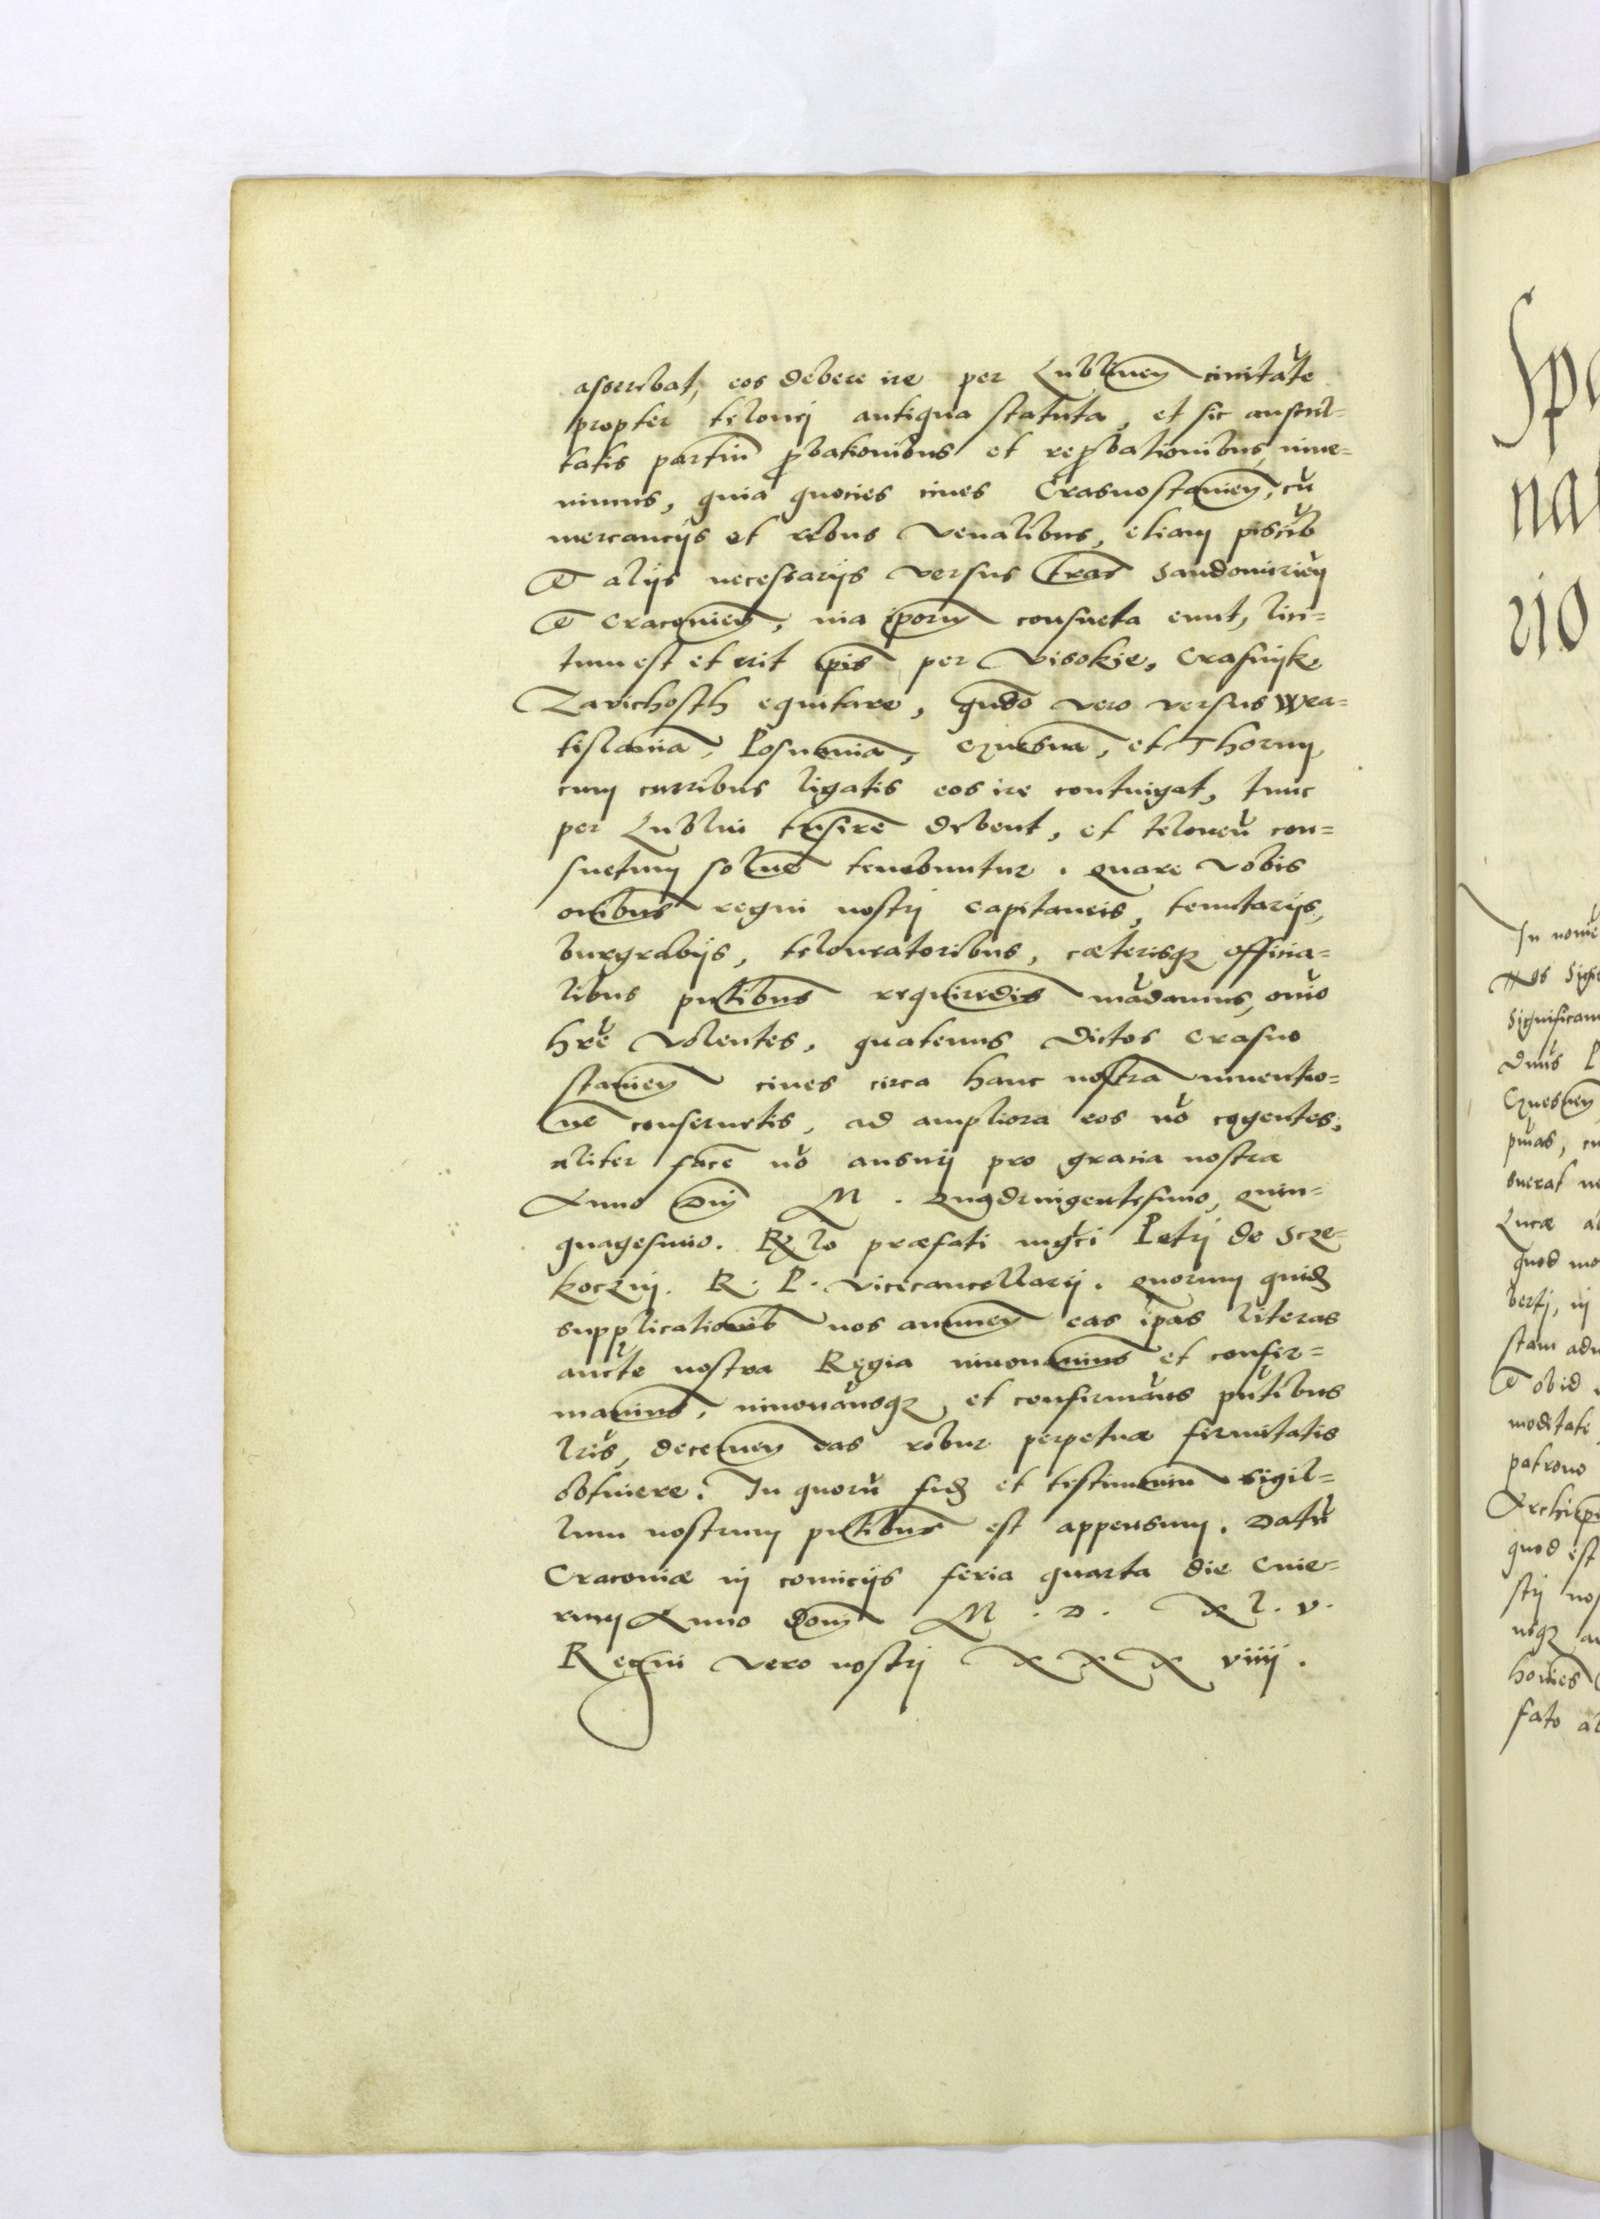 asserebat, eos debere ire per Lublineñ civitatē
propter telonej antiqua statuta, et sic auscul=
tatis partiū ꝓbationibus et reꝓbationibus, inve=
nimus, quia quocies cives Crasnostavieñ, cū
mercancijs et rebus venalibus, etiam piscib
Et alijs necessarijs versus terras Sandomirieñ
Et Cracovieñ, via ip̄orum consueta eunt, lici=
tum est et erit ip̄is per Visokie, Crasnijk,
Zavichosth equitare, qn̄do vero versus Wra=
tislaviā, Posnaniā, Gnesnā, et Thorun
cum curribus ligatis eos ire contingat, tunc
per Lublin trāsire debent, et teloneū con=
suetum solvere tenebuntur. Quare vobis
om̄ibus regni nostrj Capitaneis, tenutarijs,
burgrabijs, teloneatoribus, cæterisq; officia=
libus pn̄tibus requirēdis mādamus, om̄io
hr̄e volentes, quatenus dictos Crasno
stavieñ cives circa hanc nostrā inventio=
nē conservetis, ad ampliora eos nō cogentes,
aliter facē nō ausuri pro gracia nostra
Anno Dn̄j M. Quadringentesimo, quin=
quagesimo. Rlo præfati mgci Petrj de Scze=
koczinj. R. P. vicecancellarij. Quorum quidē
supplicationib nos annueñ eas ip̄as literas
auctē nostra Regia innovavimus et confir=
mavimus, innovāusq; et confirmāus pn̄tibus
lr̄is, decerneñ eas robur perpetuæ firmitatis
obtinere. In quorū fidē et testimoniū sigil=
lum nostrum pn̄tibus est appensum. Datū
Cracoviæ in comicijs feria quarta die Cine=
rum Anno Domj M. D. XL. V.
Regni vero nostrj XXX viiij.